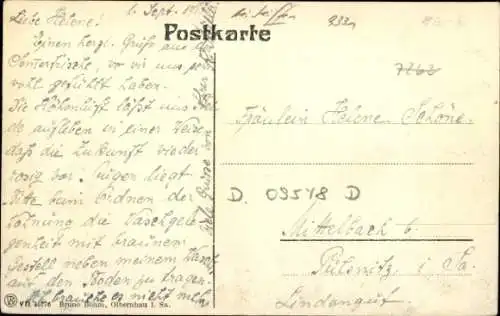 Liebe Helene!
1. Sept.
Postkarte
Einen herzl. Gruß aus der
Sommerfrische, wo wir uns so
wohl gefühlt haben.
Die Höhenluft läßt uns
aufleben in einer Weise
daß die Zukunft wieder
rosig vor Augen liegt.
Bitte beim Ordnen der
Wohnung die Waschgele-
genheit mit braunem
Gestell neben meinem
auf den Boden zu tragen.
Ich brauche es nicht mehr
7262
Fräulein Helene Schöne.
D. 09548 D
Mittelbach b.
Pulsnitz i. Sa.
Lindengut.
Bruno Böhm, Olbernhau i. Sa.